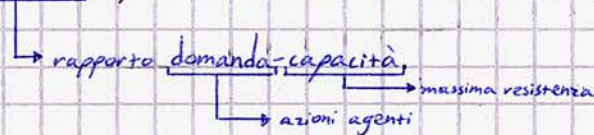 rapporto domanda-capacità,
massima resistenza
azioni agenti